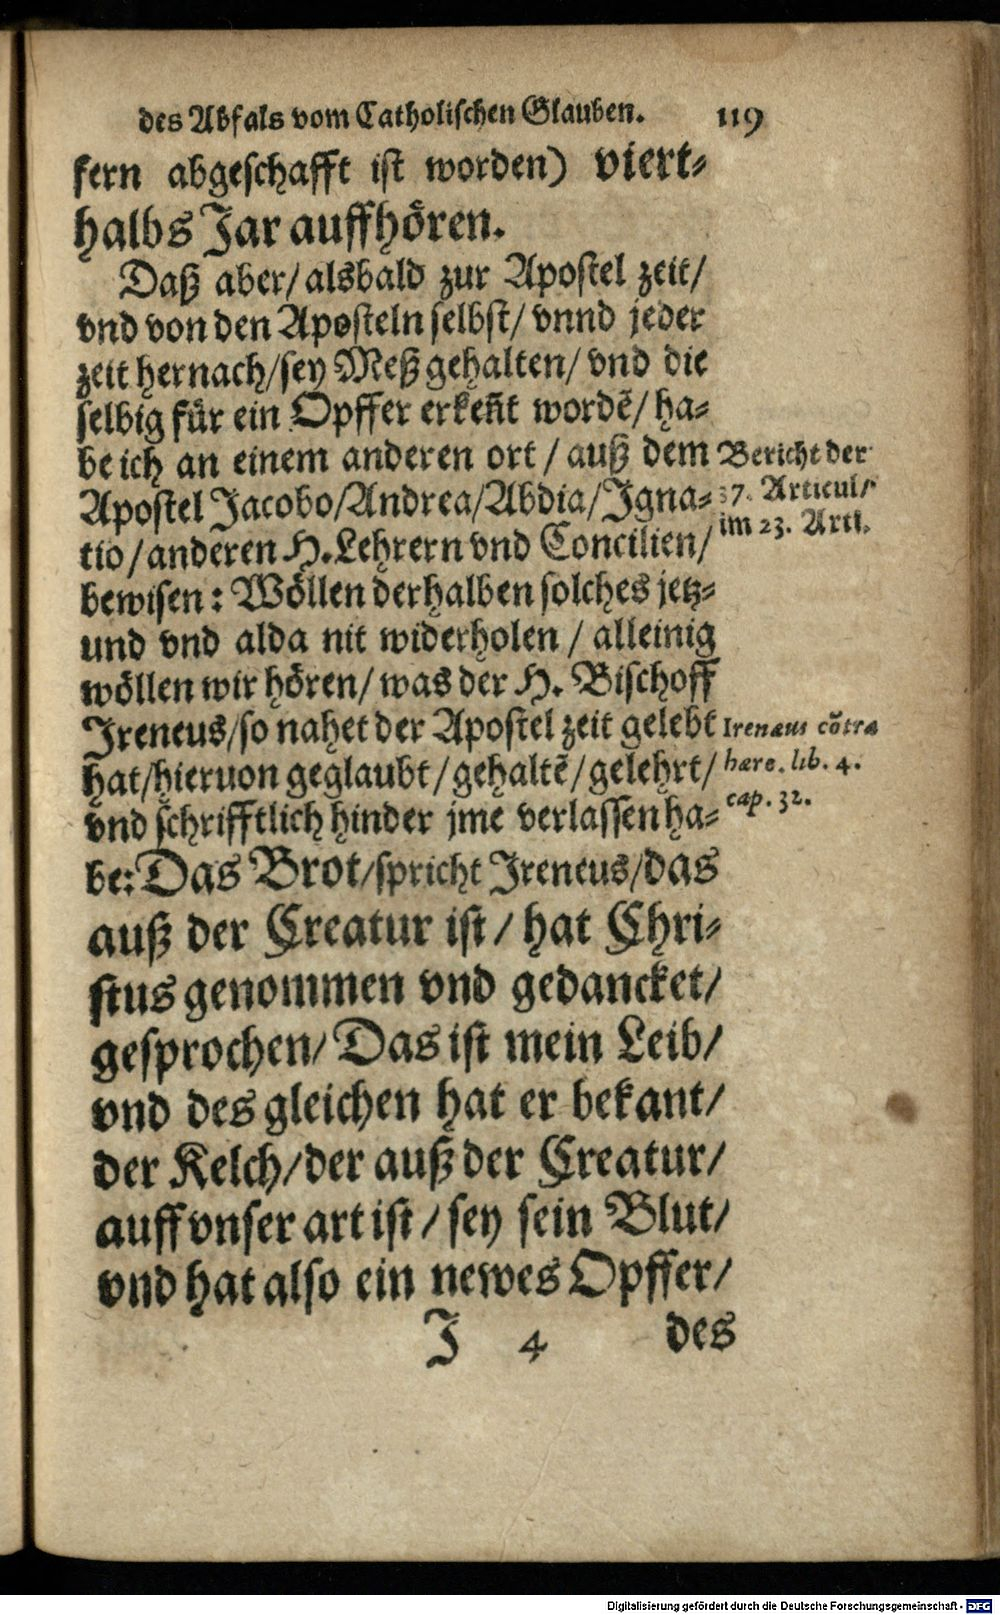 des Abfals vom Catholischen Glauben. 119
fern abgeschafft ist worden) viert-
halbs Jar auffhören.
Daß aber/ alsbald zur Apostel zeit/
vnd von den Aposteln selbst/ vnnd jeder
zeit hernach/ sey Meß gehalten/ vnd die
selbig für ein Opffer erkeñt wordẽ/ ha-
be ich an einem anderen ort / auß dem
Apostel Jacobo/Andrea/Abdia/Igna-
tio/ anderen H. Lehrern vnd Concilien/
bewisen: Wöllen derhalben solches jetz-
und vnd alda nit widerholen / alleinig
wöllen wir hören/ was der H. Bischoff
Ireneus/so nahet der Apostel zeit gelebt
hat/hieruon geglaubt/gehaltẽ/gelehrt/
vnd schrifftlich hinder jme verlassen ha-
be: Das Brot/spricht Ireneus/das
auß der Creatur ist / hat Chri-
stus genommen vnd gedancket/
gesprochen/ Das ist mein Leib/
vnd des gleichen hat er bekant/
der Kelch/der auß der Creatur/
auff vnser art ist / sey sein Blut/
vnd hat also ein newes Opffer/
I 4 des
Bericht der
37. Articul/
im 23. Arti.
Irenæus cõtra
hære. lib. 4.
cap. 32.
Digitalisierung gefördert durch die Deutsche Forschungsgemeinschaft - DFG